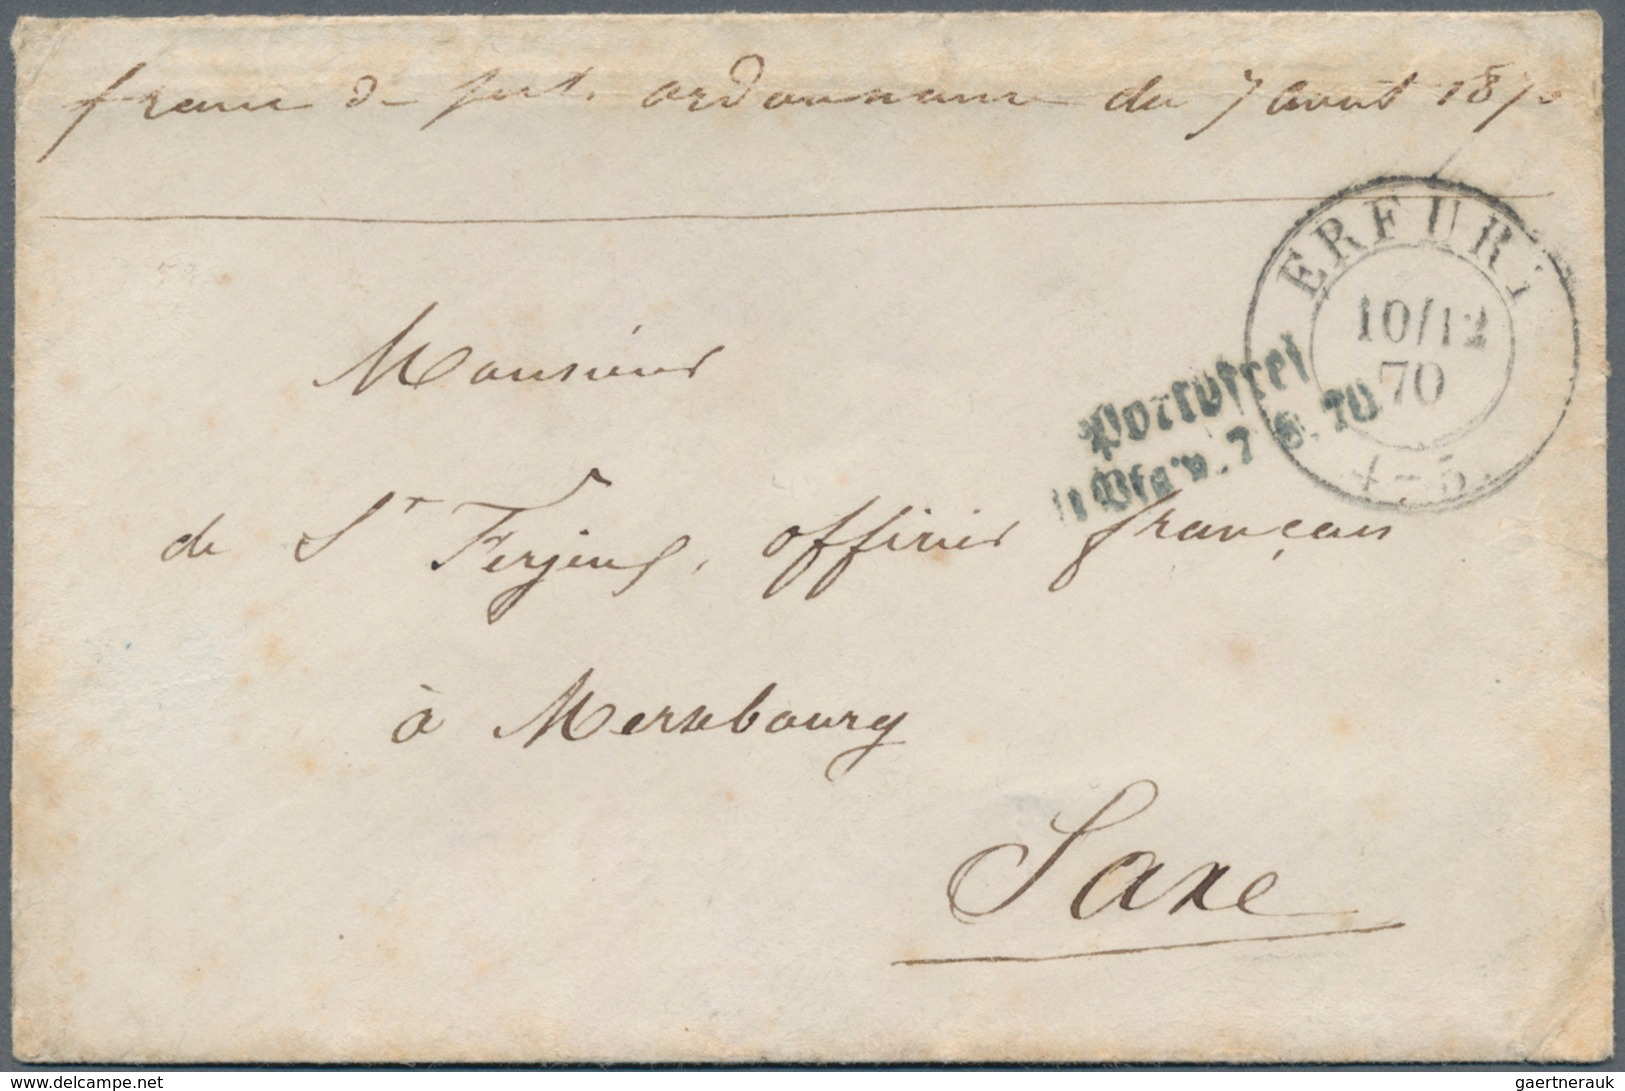 franc de port. ordonnance du 7 août 1870
ERFURT
10/12
70
4-5
Portofrei
lt Vfg. v. 7. 8. 70
Monsieur
de St Ferjeux, officier français
à Mersebourg
Saxe
www.delcampe.net
gaertnerauk